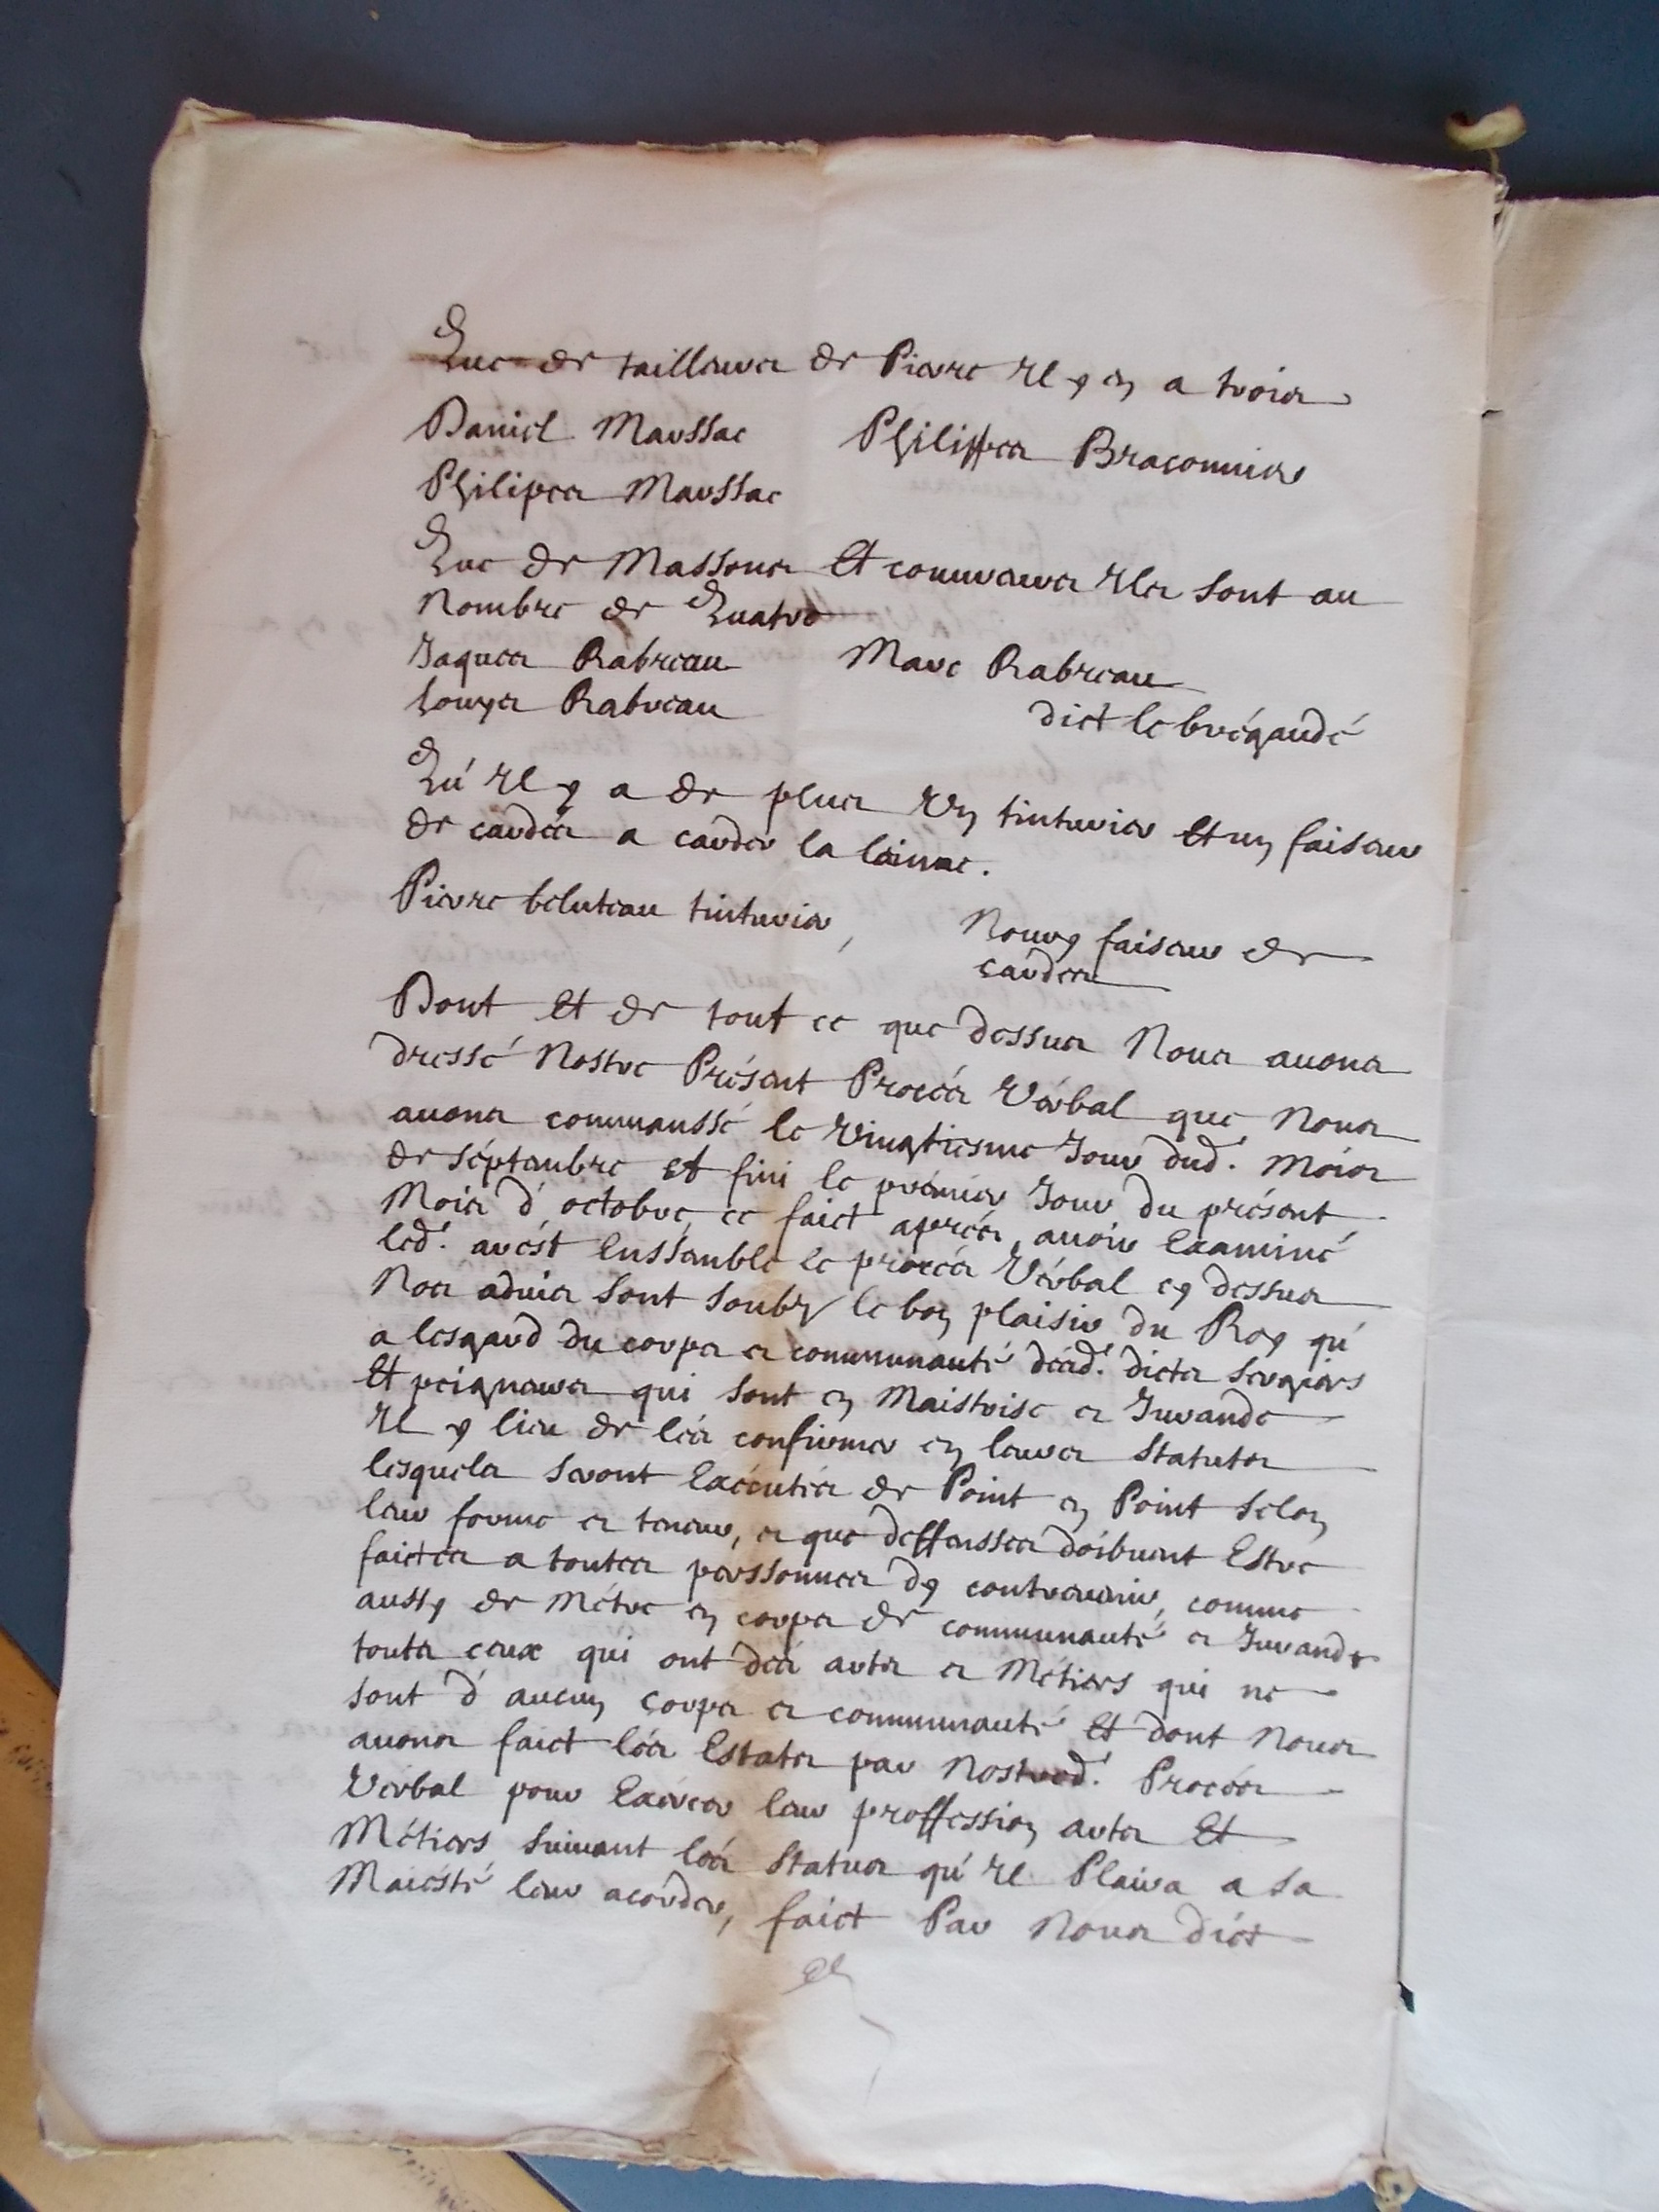 Que de tailleurs de Pierre Il y en a trois
Daniel Marssac Philippes Braconnier
Philipes Marssac
Que de Massons Et couvreurs Ils sont au
Nombre de Quatre
Jaques Rabreau Marc Rabreau
Louys Rabreau dict le brégaudé
Qu'Il y a de plus Un tinturier Et un faiseur
de cardes a carder la laine.
Pierre beluteau tinturier, Noury faiseur de
cardes
Dont Et de tout ce que dessus Nous auons
dressé Nostre Présent Procés Vérbal que Nous
auons commanssé le Vingtiesme Jour dud. Mois
de séptembre et fini le prémier Jour du présent
Mois d'octobre, ce faict aprés, auoir Examiné
led. arést Enssemble le procés Vérbal cy dessus
Nos aduis sont soubz le bon plaisir du Roy qu'
a lesgard du corps et communauté désd. dicts sergiers
Et peigneurs qui sont en Maistrise et Jurande
Il y lieu de lés confirmer en leurs statuts
lesquels seront Exécutés de Point en Point selon
leur forme et teneur, et que deffensses doibuent Estre
faictes a toutes perssonnes dy contreuenir, comme
aussy de Métre en corps de communauté et Jurande
touts ceux qui ont dés arts et Métiers qui ne
sont d'aucun corps et communauté Et dont Nous
auons faict lés Estats par Nostred. Procés
Vérbal pour Exércer leur proffession arts Et
Métiers suiuant lés status qu'Il Plaira a sa
Maiésté leur acorder, faict Par Nous dict